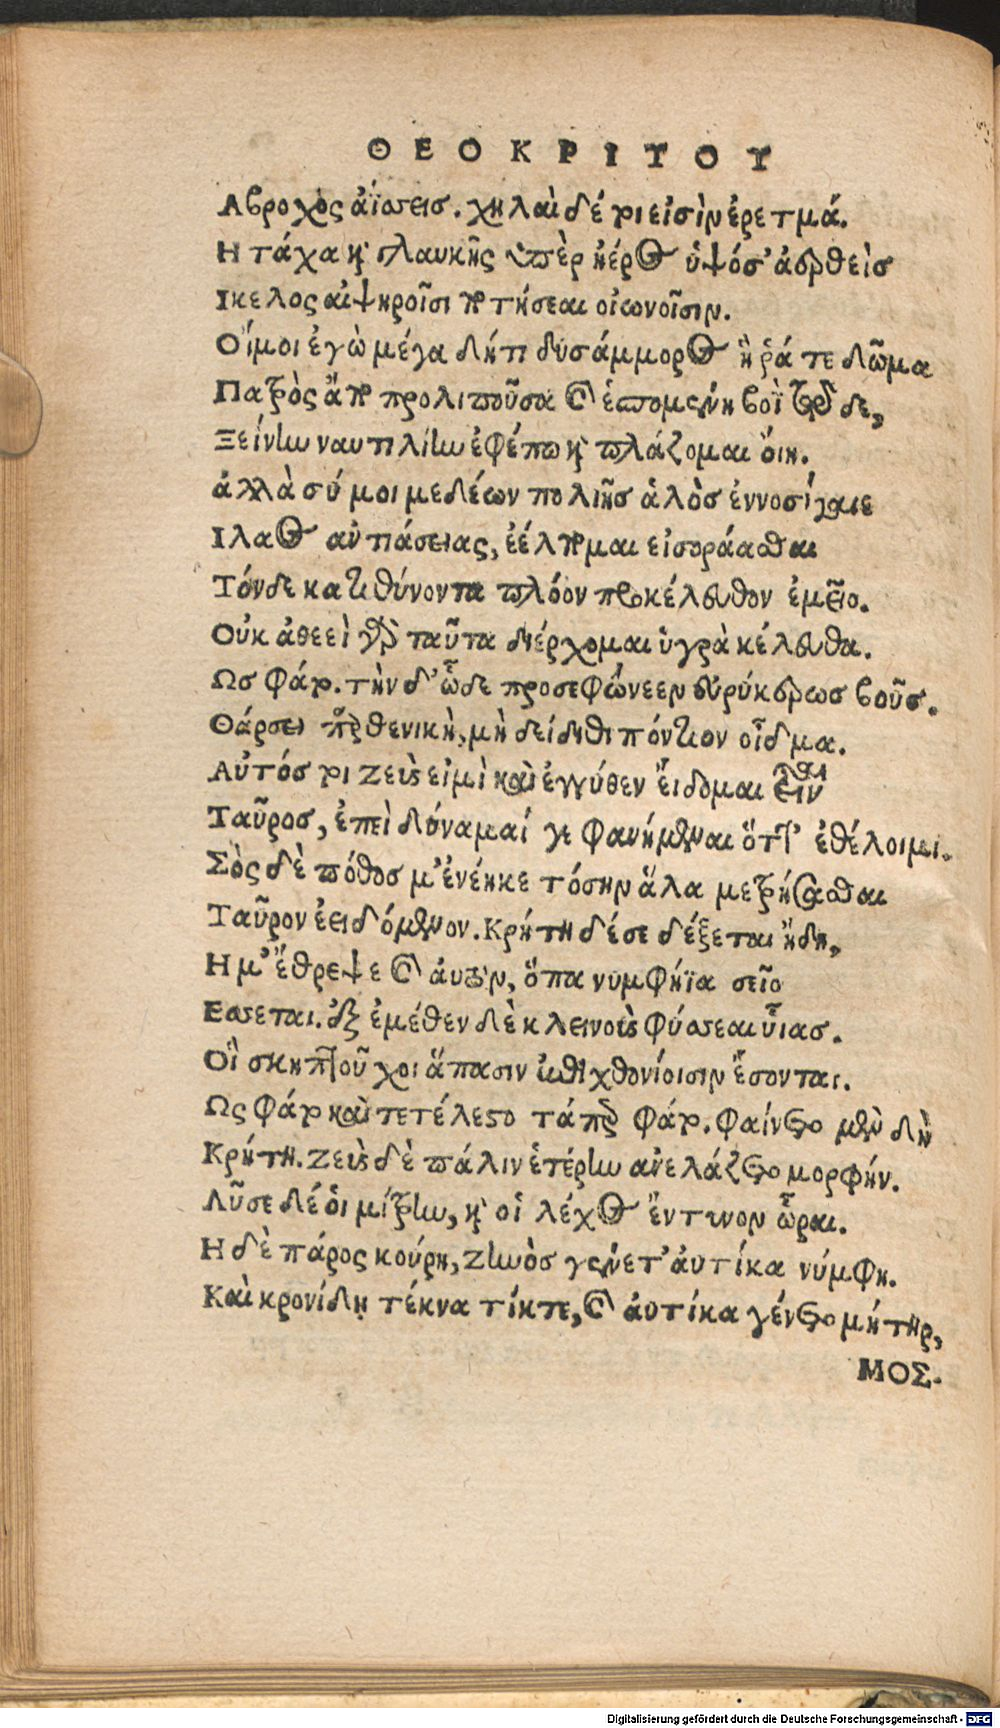 ΘΕΟΚΡΙΤΟΥ
Αβροχὸς ἀΐσσεις. χηλαὶ δέ τοι εἰσὶν ἐρετμά.
Η τάχα καὶ γλαυκῆς ὑπὲρ ἠέρος ὑψόσ' ἀερθεὶς
Ικελος αἰψηροῖσι πετήσεαι οἰωνοῖσιν.
Οἴμοι ἐγὼ μέγα δήτι δυσάμμορος ἥ ῥά τε δῶμα
Πατρὸς ἄπο προλιποῦσα καὶ ἑσπομένη βοῒ τῷδε,
Ξείνην ναυτιλίην ἐφέπω καὶ πλάζομαι οἴη.
ἀλλὰ σύ μοι μεδέων πολιῆς ἁλὸς ἐννοσίγαιε
Ιλαος ἀντιάσειας, ἐέλπομαι εἰσοράασθαι
Τόνδε κατιθύνοντα πλόον προκέλευθον ἐμεῖο.
Οὐκ ἀθεεὶ γὰρ ταῦτα διέρχομαι ὑγρὰ κέλευθα.
Ως φάτο. τὴν δ' ὧδε προσεφώνεεν εὐρύκερως βοῦς.
Θάρσει παρθενικὴ, μὴ δείδιθι πόντιον οἶδμα.
Αὐτός τοι Ζεύς εἰμὶ καὶ ἐγγύθεν εἴδομαι εἶναι
Ταῦρος, ἐπεὶ δύναμαί γε φανήμεναι ὅττι ἐθέλοιμι.
Σὸς δὲ πόθος μ' ἐνέηκε τόσην ἅλα μετρήσασθαι
Ταῦρον ἐειδόμενον. Κρήτη δέ σε δέξεται ἤδη,
Η μ' ἔθρεψε καὶ αὐτόν, ὅπα νυμφήϊα σεῖο
Εσσεται. ἐξ ἐμέθεν δὲ κλεινοὺς φύσσεαι υἷας.
Οἳ σκηπτοῦχοι ἅπασιν ἐπιχθονίοισιν ἔσονται.
Ως φάτο καὶ τετέλεστο τάπερ φάτο. φαίνετο μὲν δὴ
Κρήτη. Ζεὺς δὲ πάλιν ἑτέρην ἀνελάζετο μορφήν.
Λῦσε δέ ὁι μίτρην, καὶ οἱ λέχος ἔντυνον ὧραι.
Η δὲ πάρος κούρη, Ζηνὸς γένετ' ἀυτίκα νύμφη.
Καὶ κρονίδῃ τέκνα τίκτε, καὶ ἀυτίκα γένετο μήτηρ,
ΜΟΣ.
Digitalisierung gefördert durch die Deutsche Forschungsgemeinschaft - DFG